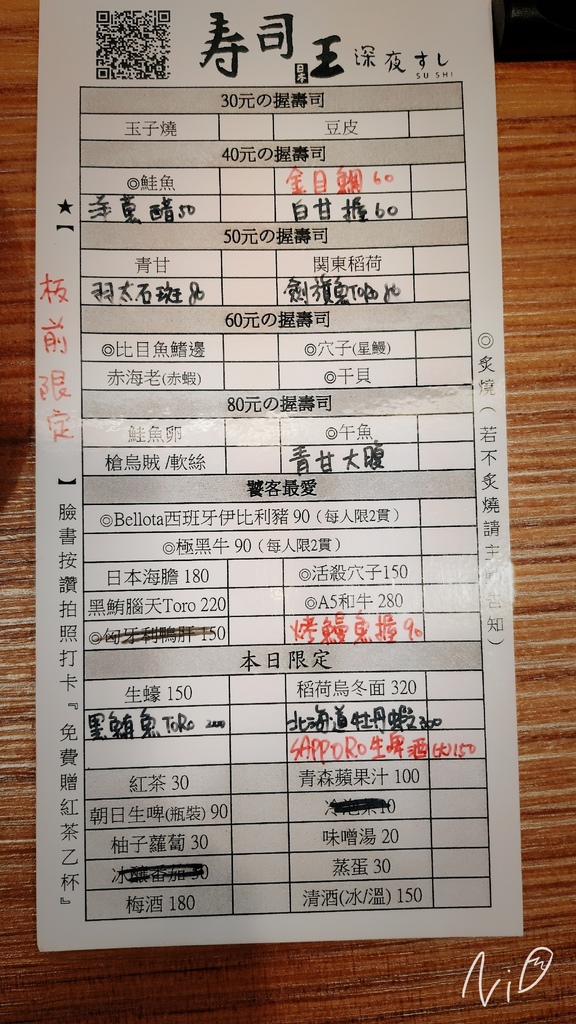 寿司王 日本 深夜すし
SUSHI
30元の握壽司
玉子燒 豆皮
40元の握壽司
◎鮭魚 金目鯛 60
醋50 白甘握60
50元の握壽司
青甘 関東稻荷
羽太石斑80 劍旗魚TORO 80
60元の握壽司
◎比目魚鰭邊 ◎穴子(星鰻)
赤海老(赤蝦) ◎干貝
80元の握壽司
鮭魚卵 ◎午魚
槍烏賊/軟絲 青甘大腹
饕客最愛
◎Bellota西班牙伊比利豬 90（每人限2貫）
◎極黑牛 90（每人限2貫）
日本海膽 180 ◎活殺穴子150
黑鮪腦天Toro 220 ◎A5和牛 280
◎匈牙利鴨肝 150 烤鰻魚握90
本日限定
生蠔 150 稻荷烏冬面 320
黑鮪魚TORO 北海道牡丹蝦 300
SAPPORO生啤酒 150
紅茶 30 青森蘋果汁 100
朝日生啤(瓶裝) 90
柚子蘿蔔 30 味噌湯 20
蒸蛋 30
梅酒 180 清酒(冰/溫) 150
★【板前限定】臉書按讚拍照打卡『免費贈紅茶乙杯』
◎炙燒（若不炙燒請主動告知）